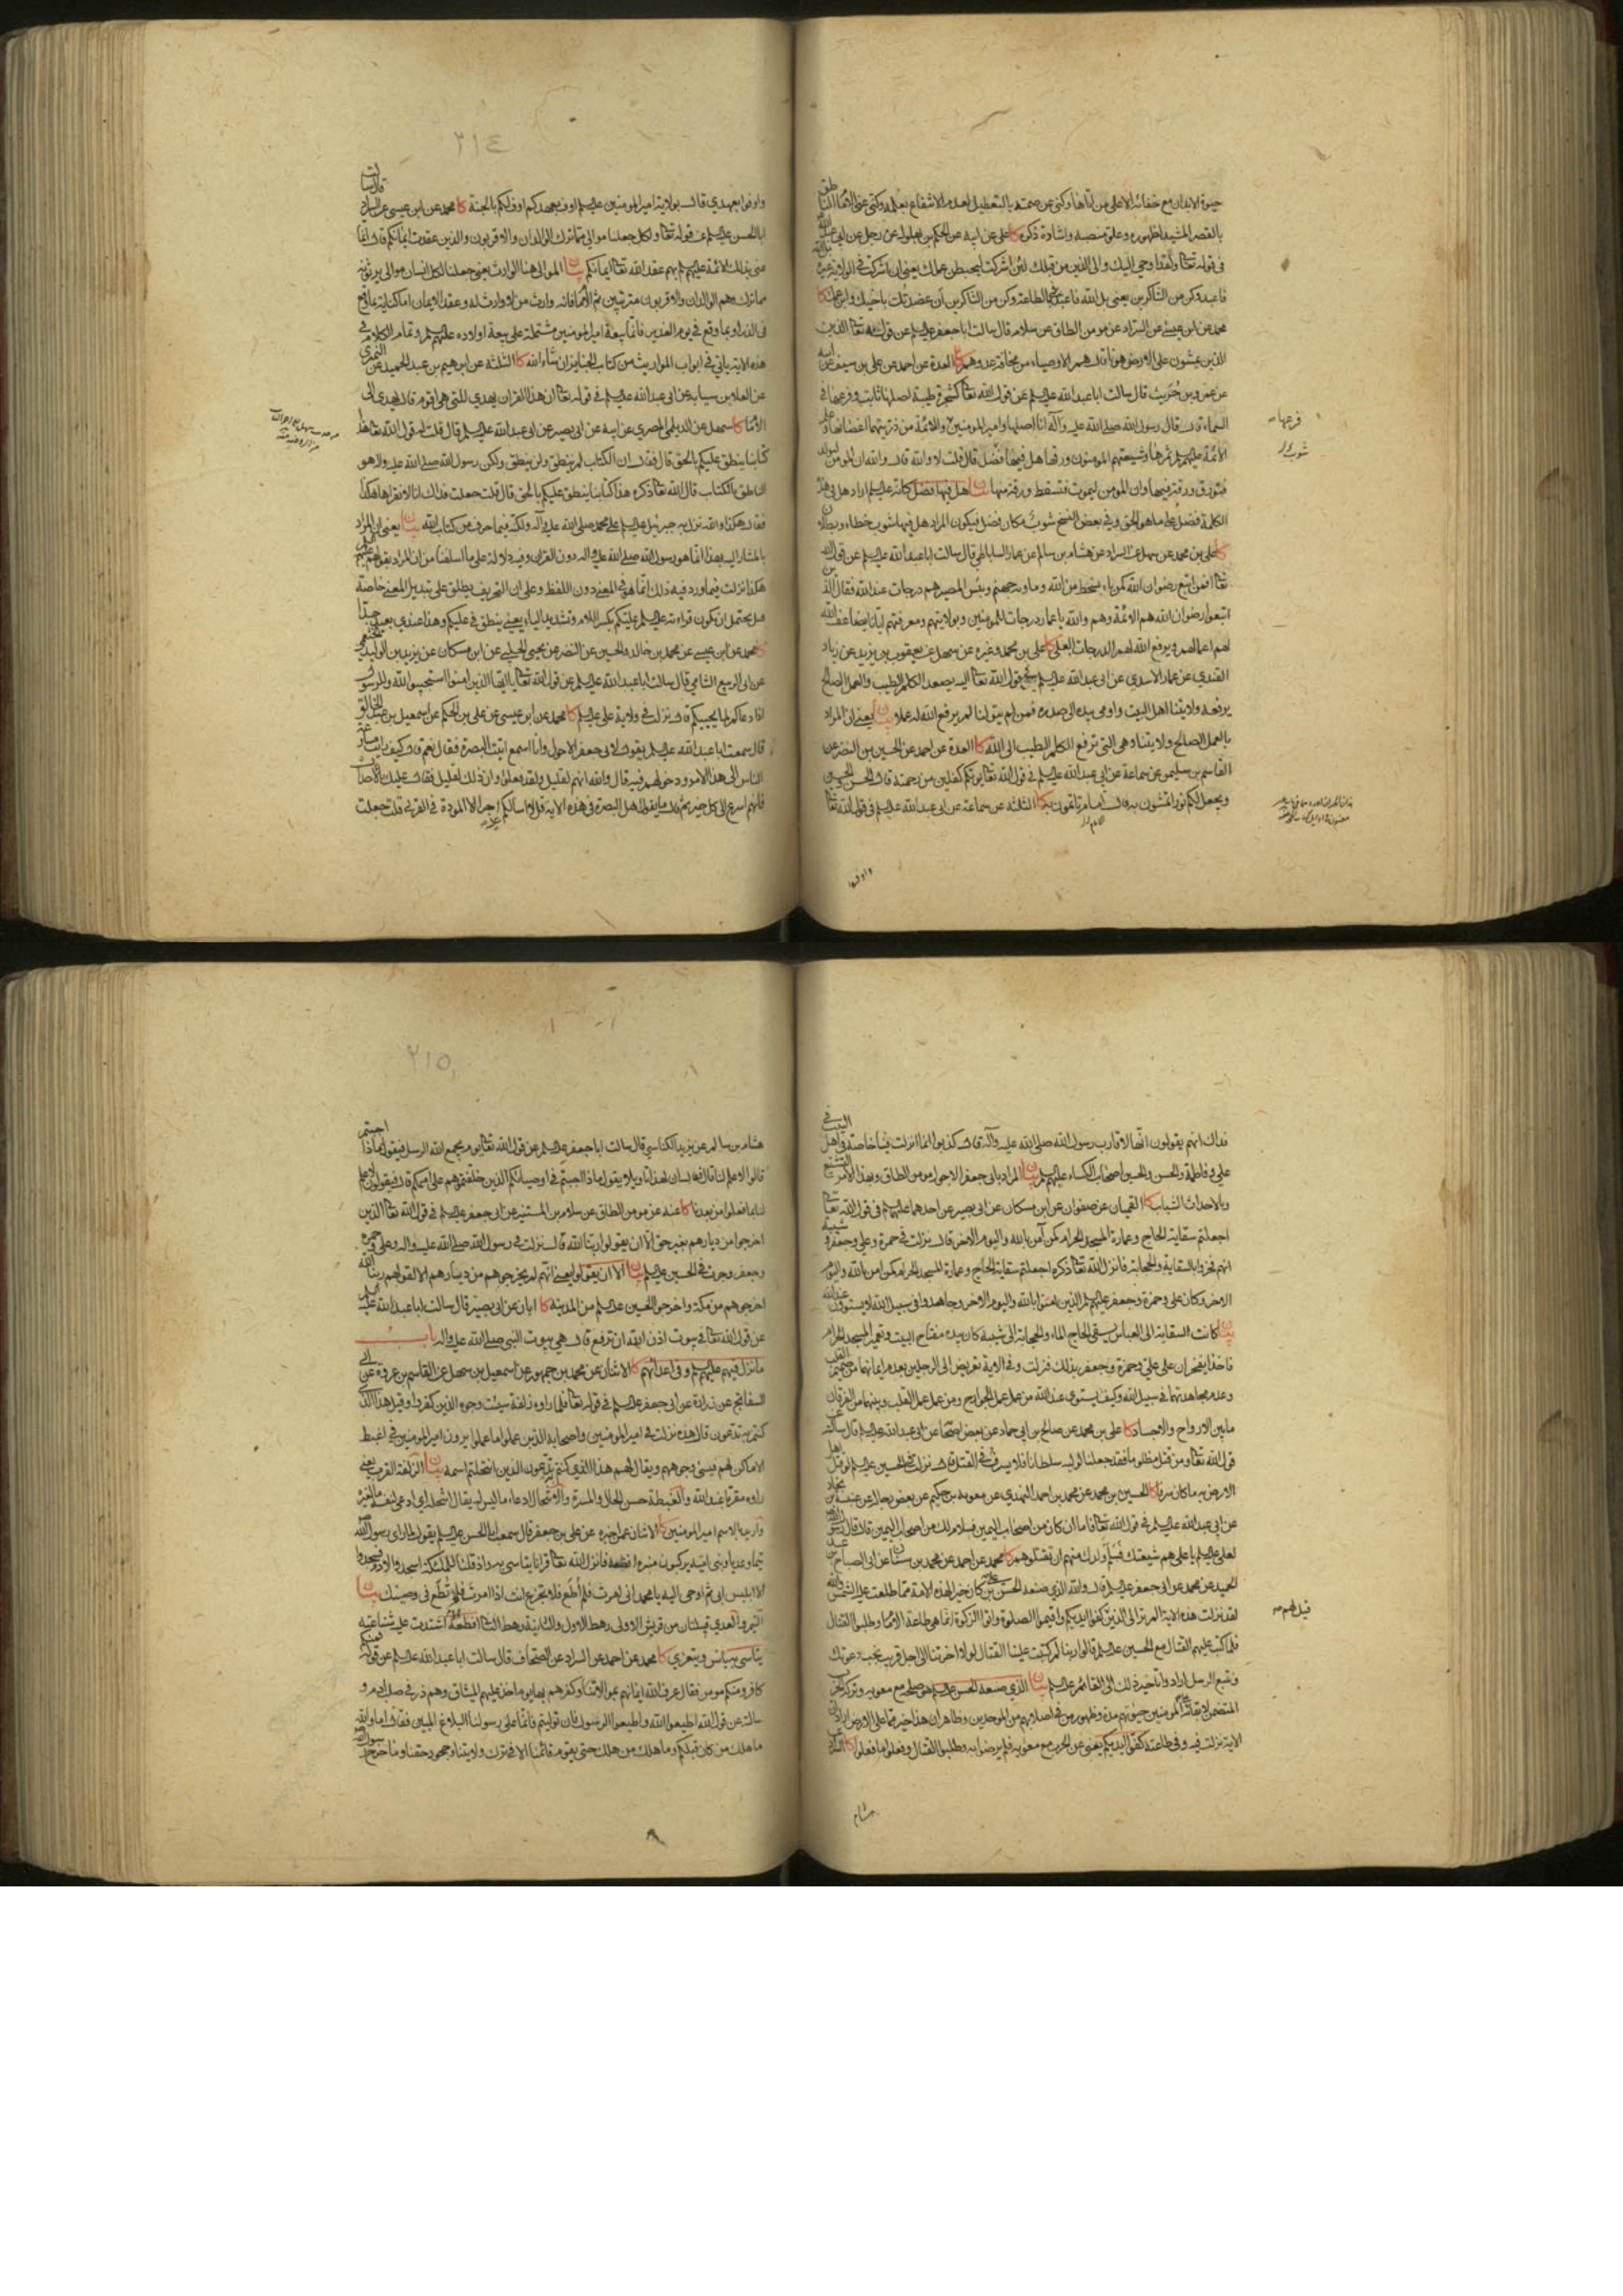 حيوة الابدان مع خفائه الاعلى من اتاها وكنى عن صمته بالتعطيل لعدم الانتفاع بعلمه وكنى عن الامام الناطق
بالقصر المشيد لظهوره وعلو منصبه واشادة ذكره كا علي عن ابيه عن الحكم بن بهلول عن رجل عن ابي عبدالله
في قوله تعالى ولقد اوحي اليك والى الذين من قبلك لئن اشركت ليحبطن عملك يعني ان اشركت في الولاية غيره
فاعبد وكن من الشاكرين يعني بل الله فاعبد بالطاعة وكن من الشاكرين ان عضدتك باخيك وابن عمك كا
محمد عن ابن عيسى عن السراد عن مومن الطاق عن سلام قال سالت ابا جعفر عليه السلم عن قوله تعالى الذين
الذين يمشون على الارض هونا قال هم الاوصياء من مخافة عدوهم كا العدة عن احمد عن علي بن سيف عن ابيه
عن عمرو بن حُرَيث قال سالت ابا عبد الله عليه السلم عن قول الله تعالى كشجرة طيبة اصلها ثابت وفرعها في
السماء قال قال رسول الله صلى الله عليه وآله انا اصلها وامير المومنين فرعها والائمة من ذريتهما اغصانها وعلم
الائمة عليهم السلم ثمرها وشيعتهم المومنون ورقها هل فيها فضل قال قلت لا والله قال والله ان المومن ليولد
فتورق ورقة فيها وان المومن ليموت فتسقط ورقة منها بيان هل فيها فضل كانه عليه السلم اراد هل في هذه
الكلمة فضل على ما هو الحق وفي بعض النسخ شوب مكان فضل فيكون المراد هل فيها شوب خطاء وبطلان
كا علي بن محمد عن سهل عن السراد عن هشام بن سالم عن عمار الساباطي قال سالت ابا عبد الله عليه السلم عن قول الله
تعالى افمن اتبع رضوان الله كمن باء بسخط من الله وماويه جهنم وبئس المصير هم درجات عند الله فقال الذين
اتبعوا رضوان الله هم الائمة وهم والله يا عمار درجات للمومنين وبولايتهم ومعرفتهم ايانا يضاعف الله
لهم اعمالهم ويرفع الله لهم الدرجات العلى كا علي بن محمد وغيره عن سهل عن يعقوب بن يزيد عن زياد
القندي عن عمار الاسدي عن ابي عبد الله عليه السلم في قول الله تعالى اليه يصعد الكلم الطيب والعمل الصالح
يرفعه ولايتنا اهل البيت واومى بيده الى صدره فمن لم يتولنا لم يرفع الله له عملا بيان يعني ان المراد
بالعمل الصالح ولايتنا وهي التي ترفع الكلم الطيب الى الله كا العدة عن احمد عن الحسين عن النضر عن
القاسم بن سليمن عن سماعة عن ابي عبد الله عليه السلم في قول الله تعالى يوتكم كفلين من رحمته قال الحسن والحسين
ويجعل لكم نورا تمشون به قال امام تاتمون به كا الثلثة عن سماعة عن ابي عبد الله عليه السلم في قول الله تعالى
واوفوا
فرعها
شوب
٢١٤
واوفوا بعهدي قال بولاية امير المومنين عليه السلم اوف بعهدكم اوف لكم بالجنة كا محمد عن ابن عيسى عن السراد قال سالت
ابا الحسن عليه السلم عن قوله تعالى ولكل جعلنا موالي مما ترك الوالدان والاقربون والذين عقدت ايمانكم قال انما
عنى بذلك الائمة عليهم السلم بهم عقد الله تعالى ايمانكم بيان الموالي هنا الوارث يعني جعلنا لكل انسان موالي يرثونه
مما ترك وهم الوالدان والاقربون مترتبين ثم الامام فانه وارث من لا وارث له وعقد الايمان اما كناية عما وقع
في الذر او بما وقع في يوم الغدير فانما بيعة امير المومنين مشتملة على بيعة اولاده عليهم السلم وتمام الكلام في
هذه الاية ياتي في ابواب المواريث من كتاب الجنايز ان شاء الله كا الثلثة عن ابرهيم بن عبد الحميد عن النميري
عن العلاء بن سيابة عن ابي عبد الله عليه السلم في قوله تعالى ان هذا القران يهدي للتي هي اقوم قال يهدي الى
الامام كا سهل عن الديلمي المصري عن ابيه عن ابي بصير عن ابي عبد الله عليه السلم قال قلت له قول الله تعالى هذا
كتابنا ينطق عليكم بالحق قال فقال ان الكتاب لم ينطق ولن ينطق ولكن رسول الله صلى الله عليه وآله هو
الناطق بالكتاب قال الله تعالى ذكره هذا كتابنا ينطق عليكم بالحق قال قلت جعلت فداك انا لا نقراها هكذا
فقال هكذا والله نزل به جبرئيل عليه السلم على محمد صلى الله عليه وآله ولكنه فيما حرف من كتاب الله بيان يعني ان المراد
بالمشار اليه بهذا انما هو رسول الله صلى الله عليه وآله دون القران وفيه دلالة على ما اسلفنا من ان المراد بقولهم عليهم السلم
هكذا نزلت فيما ورد فيه ذلك انما هو في المعنى دون اللفظ وعلى ان التحريف يطلق على تبديل المعنى خاصة
هل يحتمل ان يكون قراءته عليه السلم عليكم بكسر اللام وتشديد الياء يعني ينطق في عليكم وهذا عندي بعيد جدا
كا محمد عن ابن عيسى عن محمد بن خالد والحسين عن النضر عن يحيى الحلبي عن ابن مسكان عن يزيد بن الوليد الخثعمي
عن ابي الربيع الشامي قال سالت ابا عبد الله عليه السلم عن قول الله تعالى يا ايها الذين امنوا استجيبوا لله وللرسول
اذا دعاكم لما يحييكم قال نزلت في ولاية علي عليه السلم كا محمد عن ابن عيسى عن علي بن الحكم عن اسمعيل بن عبد الخالق
قال سمعت ابا عبد الله عليه السلم يقول لابي جعفر الاحول وانا اسمع اتيت البصرة فقال نعم قال كيف رايت مسارعة
الناس الى هذا الامر ودخولهم فيه قال والله انهم لقليل ولقد فعلوا وان ذلك لقليل فقال عليك بالاحداث
فانهم اسرع الى كل خير ثم قال ما يقول اهل البصرة في هذه الاية قل لا اسالكم عليه اجرا الا المودة في القربى قلت جعلت
فداك انهم يقولون انها لاقارب رسول الله صلى الله عليه وآله قال كذبوا انما نزلت فينا خاصة في اهل البيت في
علي وفاطمة والحسن والحسين اصحاب الكساء عليهم السلم بيان المراد بابي جعفر الاحول مومن الطاق وبهذا الامر التشيع
وبالاحداث الشباب كا القميان عن صفوان عن ابن مسكان عن ابي بصير عن احدهما عليهما السلم في قول الله تعالى
اجعلتم سقاية الحاج وعمارة المسجد الحرام كمن آمن بالله واليوم الاخر قال نزلت في حمزة وعلي وجعفر و شيبة
انهم فخروا بالسقاية والحجابة فانزل الله تعالى ذكره اجعلتم سقاية الحاج وعمارة المسجد الحرام كمن امن بالله واليوم
الاخر وكان علي وحمزة وجعفر عليهم السلم الذين امنوا بالله واليوم الاخر وجاهدوا في سبيل الله لا يستوون عند الله
بيان كانت السقاية الى العباس يسقي الحاج الماء والحجابة الى شيبة كان بيده مفتاح البيت وتعمير المسجد الحرام
فاخذا يفخران على علي وحمزة وجعفر بذلك فنزلت وفي الاية تعريض الى الرجلين بعدم ايمانهما من صميم القلب
وعدم مجاهدتهما في سبيل الله وكيف يستوي عند الله من عمل عمل الجوارح ومن عمل عمل القلب وبينهما من الفرقان
ما بين الارواح والاجساد كا علي بن محمد عن صالح بن ابي حماد عن بعض اصحابنا عن ابي عبد الله عليه السلم قال سالته عن
قول الله تعالى ومن قتل مظلوما فقد جعلنا لوليه سلطانا فلا يسرف في القتل قال نزلت في الحسين عليه السلم لو قتل اهل
الارض به ما كان سرفا كا الحسين بن محمد عن محمد بن احمد النهدي عن معوية بن حكيم عن بعض رجاله عن عنبسة بن بجاد
عن ابي عبد الله عليه السلم في قول الله تعالى فاما ان كان من اصحاب اليمين فسلام لك من اصحاب اليمين قال قال رسول الله
لعلي عليه السلم يا علي هم شيعتك فسلم ولدك منهم ان يقتلوهم كا محمد عن احمد عن محمد بن سنان عن ابي الصباح بن عبد
الحميد عن محمد عن ابي جعفر عليه السلم قال والله الذي صنعه الحسن بن علي كان خيرا لهذه الامة مما طلعت عليه الشمس والله
لقد نزلت هذه الاية الم تر الى الذين قيل لهم كفوا ايديكم واقيموا الصلوة واتوا الزكوة انما هي طاعة الامام وطلبوا القتال
فلما كتب عليهم القتال مع الحسين عليه السلم قالوا ربنا لم كتبت علينا القتال لولا اخرتنا الى اجل قريب نجب دعوتك
ونتبع الرسل ارادوا تاخير ذلك الى القائم عليه السلم بيان الذي صنعه الحسن عليه السلم هو صلحه مع معوية وتركه الحرب
المتضمن لابقاء المومنين حيوتهم مدة وظهور من في اصلابهم من الموحدين وظاهر ان هذا خير مما على الارض
الاية نزلت فيه وفي طاعته كفوا ايديكم يعني عن الحرب مع معوية فلم يرضوا به وطلبوا القتال وفعلوا ما فعلوا كا السراد عن
هشام
قيل لهم
٢١٥
هشام بن سالم عن يزيد الكناسي قال سالت ابا جعفر عليه السلم عن قول الله تعالى يوم يجمع الله الرسل فيقول ماذا اجبتم
قالوا لا علم لنا قال فقال ان لهذا تاويلا يقول ماذا اجبتم في اوصيائكم الذين خلفتموهم على اممكم قال فيقولون لا علم
لنا بما فعلوا من بعدنا كا عنه عن مومن الطاق عن سلام بن المستنير عن ابي جعفر عليه السلم في قول الله تعالى الذين
اخرجوا من ديارهم بغير حق الا ان يقولوا ربنا الله قال نزلت في رسول الله صلى الله عليه واله وعلي وحمزة
وجعفر وجرت في الحسين عليه السلم بيان الا ان يقولوا يعني انهم لم يخرجوهم من ديارهم الا لقولهم ربنا الله
اخرجوهم من مكة واخرجوا الحسين عليه السلم من المدينة كا ابان عن ابي بصير قال سالت ابا عبد الله عليه السلم
عن قول الله تعالى في بيوت اذن الله ان ترفع قال هي بيوت النبي صلى الله عليه واله باب
ما نزل فيهم عليهم السلم وفي اعدائهم كا الاثنان عن محمد بن جمهور عن اسمعيل بن سهل عن القاسم بن عروة عن ابي
السفاتج عن زرارة عن ابي جعفر عليه السلم في قوله تعالى فلما راوه زلفة سيئت وجوه الذين كفروا وقيل هذا الذي
كنتم به تدعون قال هذه نزلت في امير المومنين واصحابه الذين عملوا ما عملوا يرون امير المومنين في اغبط
الاماكن لهم فيسئ وجوههم ويقال لهم هذا الذي كنتم به تدعون الذين انتحلتم اسمه بيان الزلفة القرب يعني
راوه مقربا عند الله والغبطة حسن الحال والمسرة والانتحال ادعاء ما ليس له يقال انتحله اي ادعى لنفسه ما لغيره
واريد بالاسم امير المومنين كا الاثنان عمن اخبره عن علي بن جعفر قال سمعت ابا الحسن عليه السلم يقول لما راى رسول الله ص
تيما وعديا وبني امية يركبون منبره افظعه فانزل الله تعالى قرانا يتاسى به واذ قلنا للملئكة اسجدوا لادم فسجدوا
الا ابليس ابى ثم اوحى اليه يا محمد اني امرت فلم اطع فلا تجزع انت اذا امرت فلم تطع في وصيك بيان
التيم والعدي قبيلتان من قريش الاولى رهط الاول والثانية رهط الثاني افظعه اشتدت عليه شناعته
يتاسى به يتانس ويتعزى كا محمد عن احمد عن السراد عن الصحاف قال سالت ابا عبد الله عليه السلم عن قوله فمنكم
كافر ومنكم مومن فقال عرف الله ايمانهم بموالاتنا وكفرهم بها يوم اخذ عليهم الميثاق وهم ذر في صلب ادم و
سالته عن قول الله اطيعوا الله واطيعوا الرسول فان توليتم فانما على رسولنا البلاغ المبين فقال اما والله
ما هلك من كان قبلكم وما هلك من هلك حتى يقوم قائمنا الا في ترك ولايتنا وجحود حقنا وما خرج رسول الله